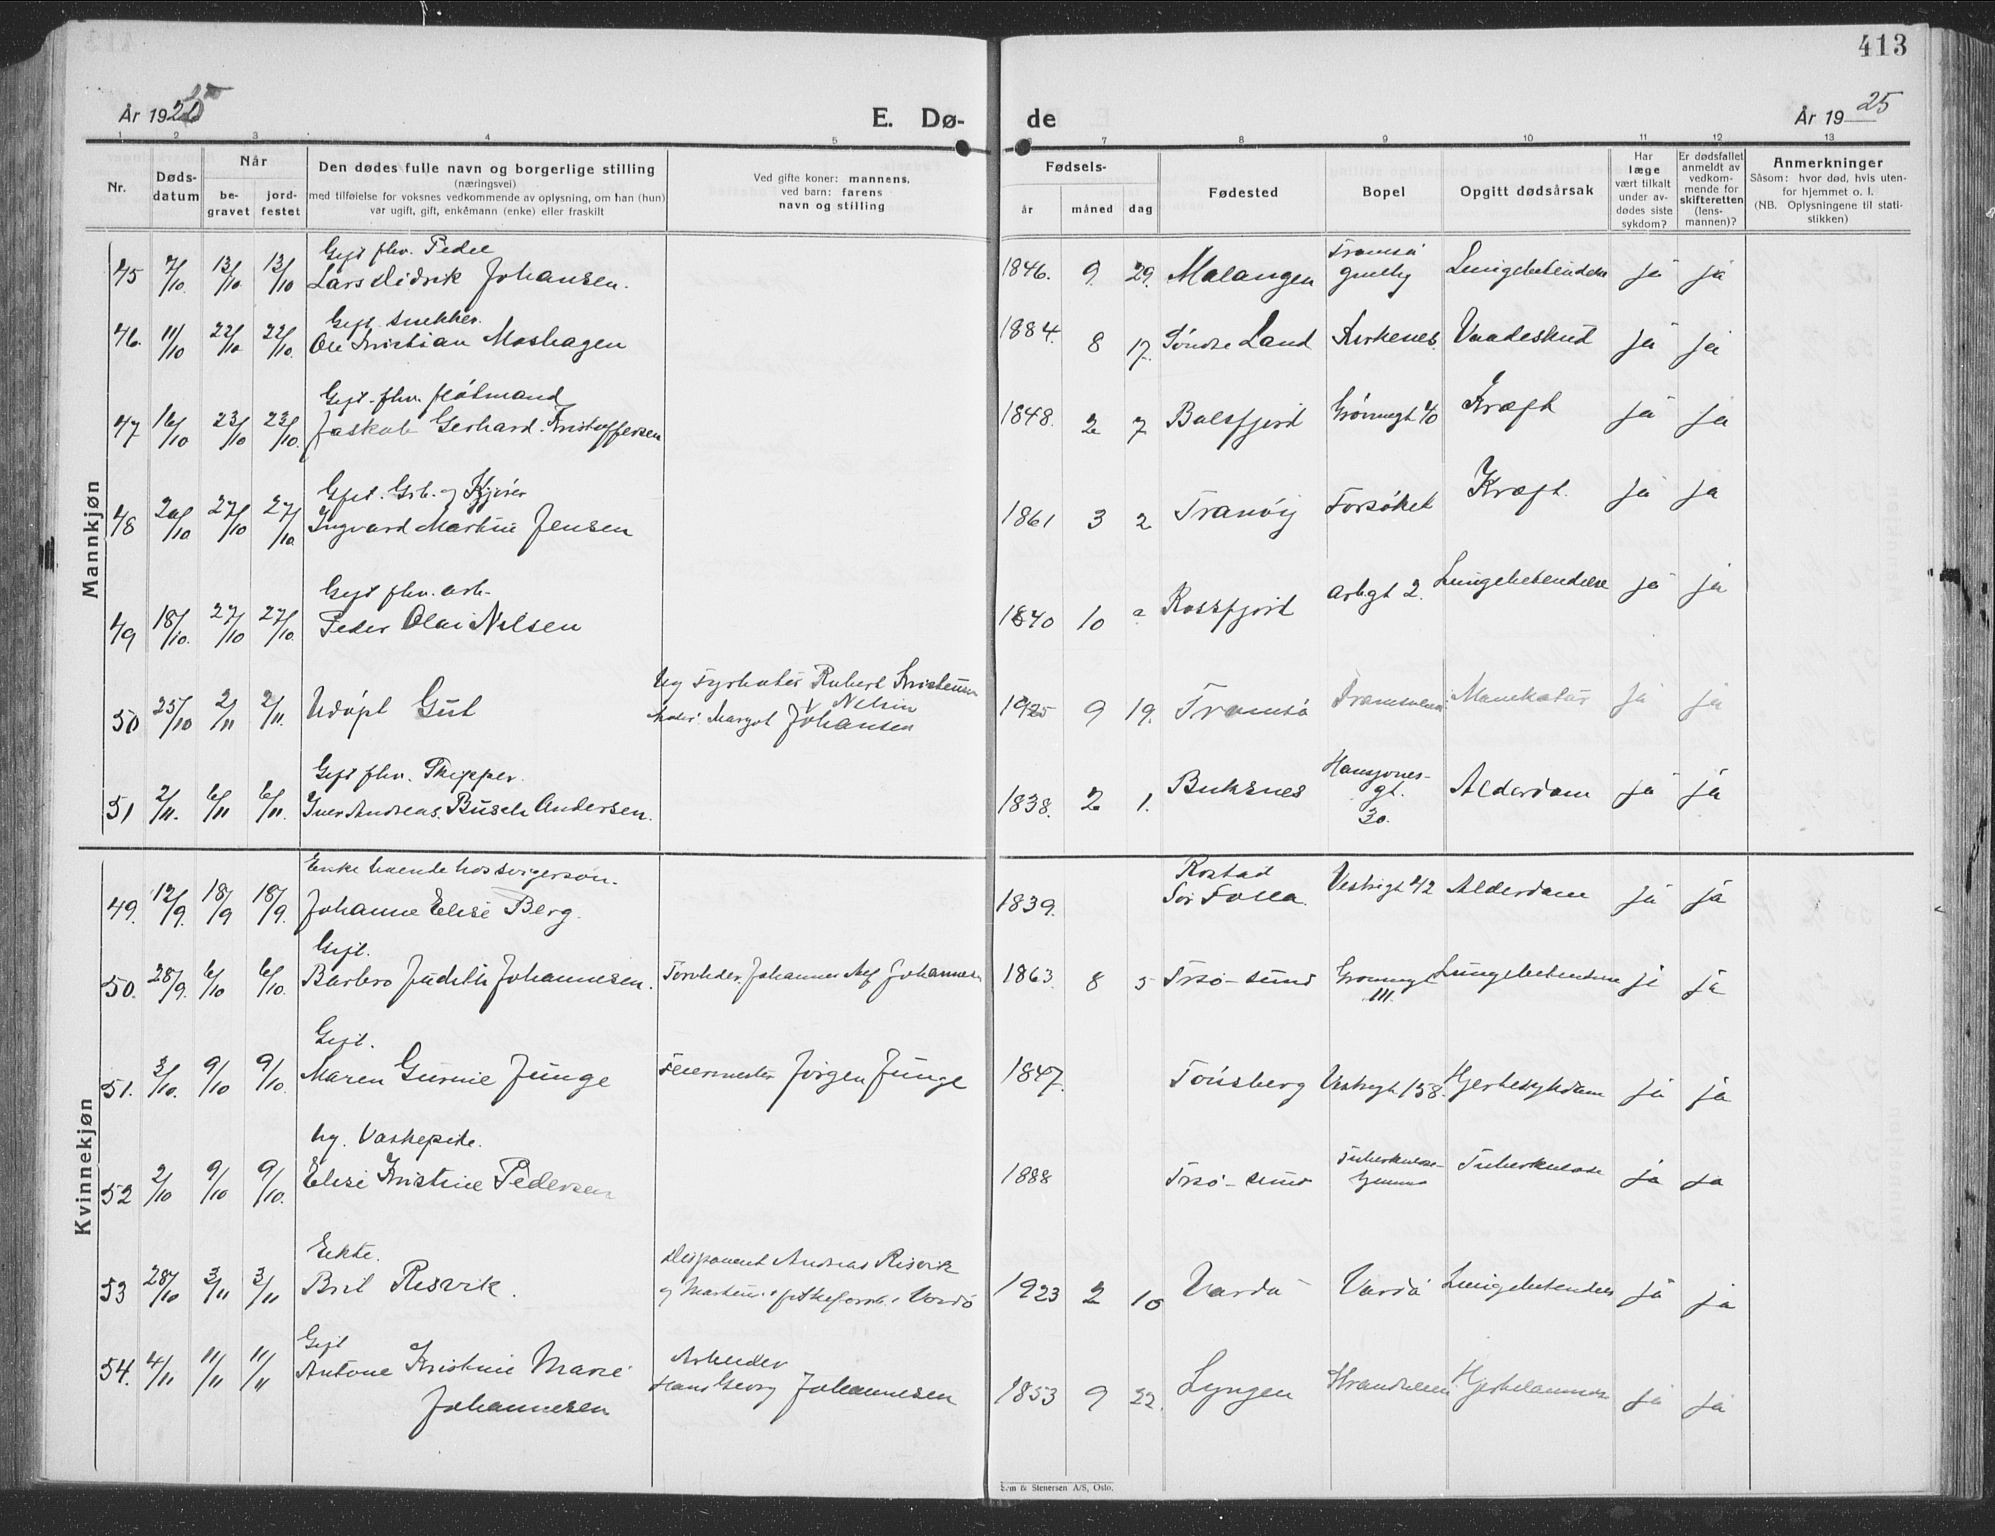 413
År 1925
E. Dø-
de
År 19 25
1 2 3 4 5 6 7 8 9 10 11 12 13
Nr.
Døds-
datum
Når
be-
gravet
jord-
festet
Den dødes fulle navn og borgerlige stilling
(næringsvei)
med tilføielse for voksnes vedkommende av oplysning, om han (hun)
var ugift, gift, enkemann (enke) eller fraskilt
Ved gifte koner: mannens,
ved barn: farens
navn og stilling
Fødsels-
år måned dag
Fødested
Bopel
Opgitt dødsårsak
Har
læge
vært tilkalt
under av-
dødes siste
sykdom?
Er dødsfallet
anmeldt av
vedkom-
mende for
skifteretten
(lens-
mannen)?
Anmerkninger
Såsom: hvor død, hvis uten-
for hjemmet o. l.
(NB. Oplysningene til stati-
stikken)
Mannkjøn
Gift fhv. Pedel
45 7/10 13/10 13/10 Lars Didrik Johansen. 1846. 9 29. Malangen Tromsø Lungebetendelse ja ja
Gift snekker.
46. 11/10 22/10 22/10. Ole Kristian Moshagen 1884. 8 17. Søndre Land Kirkenes. Vaadeskud ja ja
Gift. fhv. fløtmand
47 16/10 23/10 23/10. Jaskob Gerhard. Kristoffersen 1848. 2 7 Balsfjord Grønnegt Kræft ja ja
Gift. Grb. og Kjører
48 20/10 27/10 27/10. Ingvard Martin Jensen 1861 3 2 Tranøy Forsøket Kræft. ja ja
Gift fhv. arb.
49 18/10. 27/10 27/10. Peder Olai Nilsen 1840 10 Rossfjord Arbgt 2. Lungebetendelse ja ja
50 25/10 2/11 2/11. Udøpt Gut Ug Fyrbøter Robert Kristensen
Nilsen
Moder: Margot Johansen 1925 9 19. Tromsø Manekatar ja ja
Gift fhv. Skipper.
51 2/11. 6/11 6/11. Iver Andreas. Busch Andersen. 1838. 2 1. Buksnes Hansjornes-
gt.
30. Alderdom ja ja
Kvinnekjøn
Enke boende hos svigersøn.
49. 12/9. 18/9 18/9. Johanne Elise Berg. 1839. Rostad
Sør Folla Vestregt 42 Alderdom ja ja
Gift.
50. 28/9. 6/10 6/10. Barbro Judith Johannesen. Johannes Johannesen 1863 8 5 Trsø-sund Grønnegt
111. Lungebetendelse ja ja
Gift.
51. 3/10. 9/10 9/10. Maren Gurine Junge Feiermester Jørgen Junge 1847. Tønsberg Vestregt 158. Hjertesykdom ja ja
Ug. Vaskepike.
52 2/10 9/10 9/10. Elise Kristine Pedersen 1888 Trsø-sund Tuberkulose-
hjemmet Tuberkulose ja ja
Ekte.
53 28/10 3/11 3/11 Brit Risvik. Disponent Andreas Risvik
og Vardø 1923 2 10 Vardø Vardø Lungebetendelse ja ja
Gift
54. 4/11 11/11 11/11 Antone Kristine Marie
Johannesen
Arbeider
Hans Georg Johannesen 1853 9 22. Lyngen Strandveien Hjertelammelse ja ja
Sem & Stenersen A/S, Oslo.